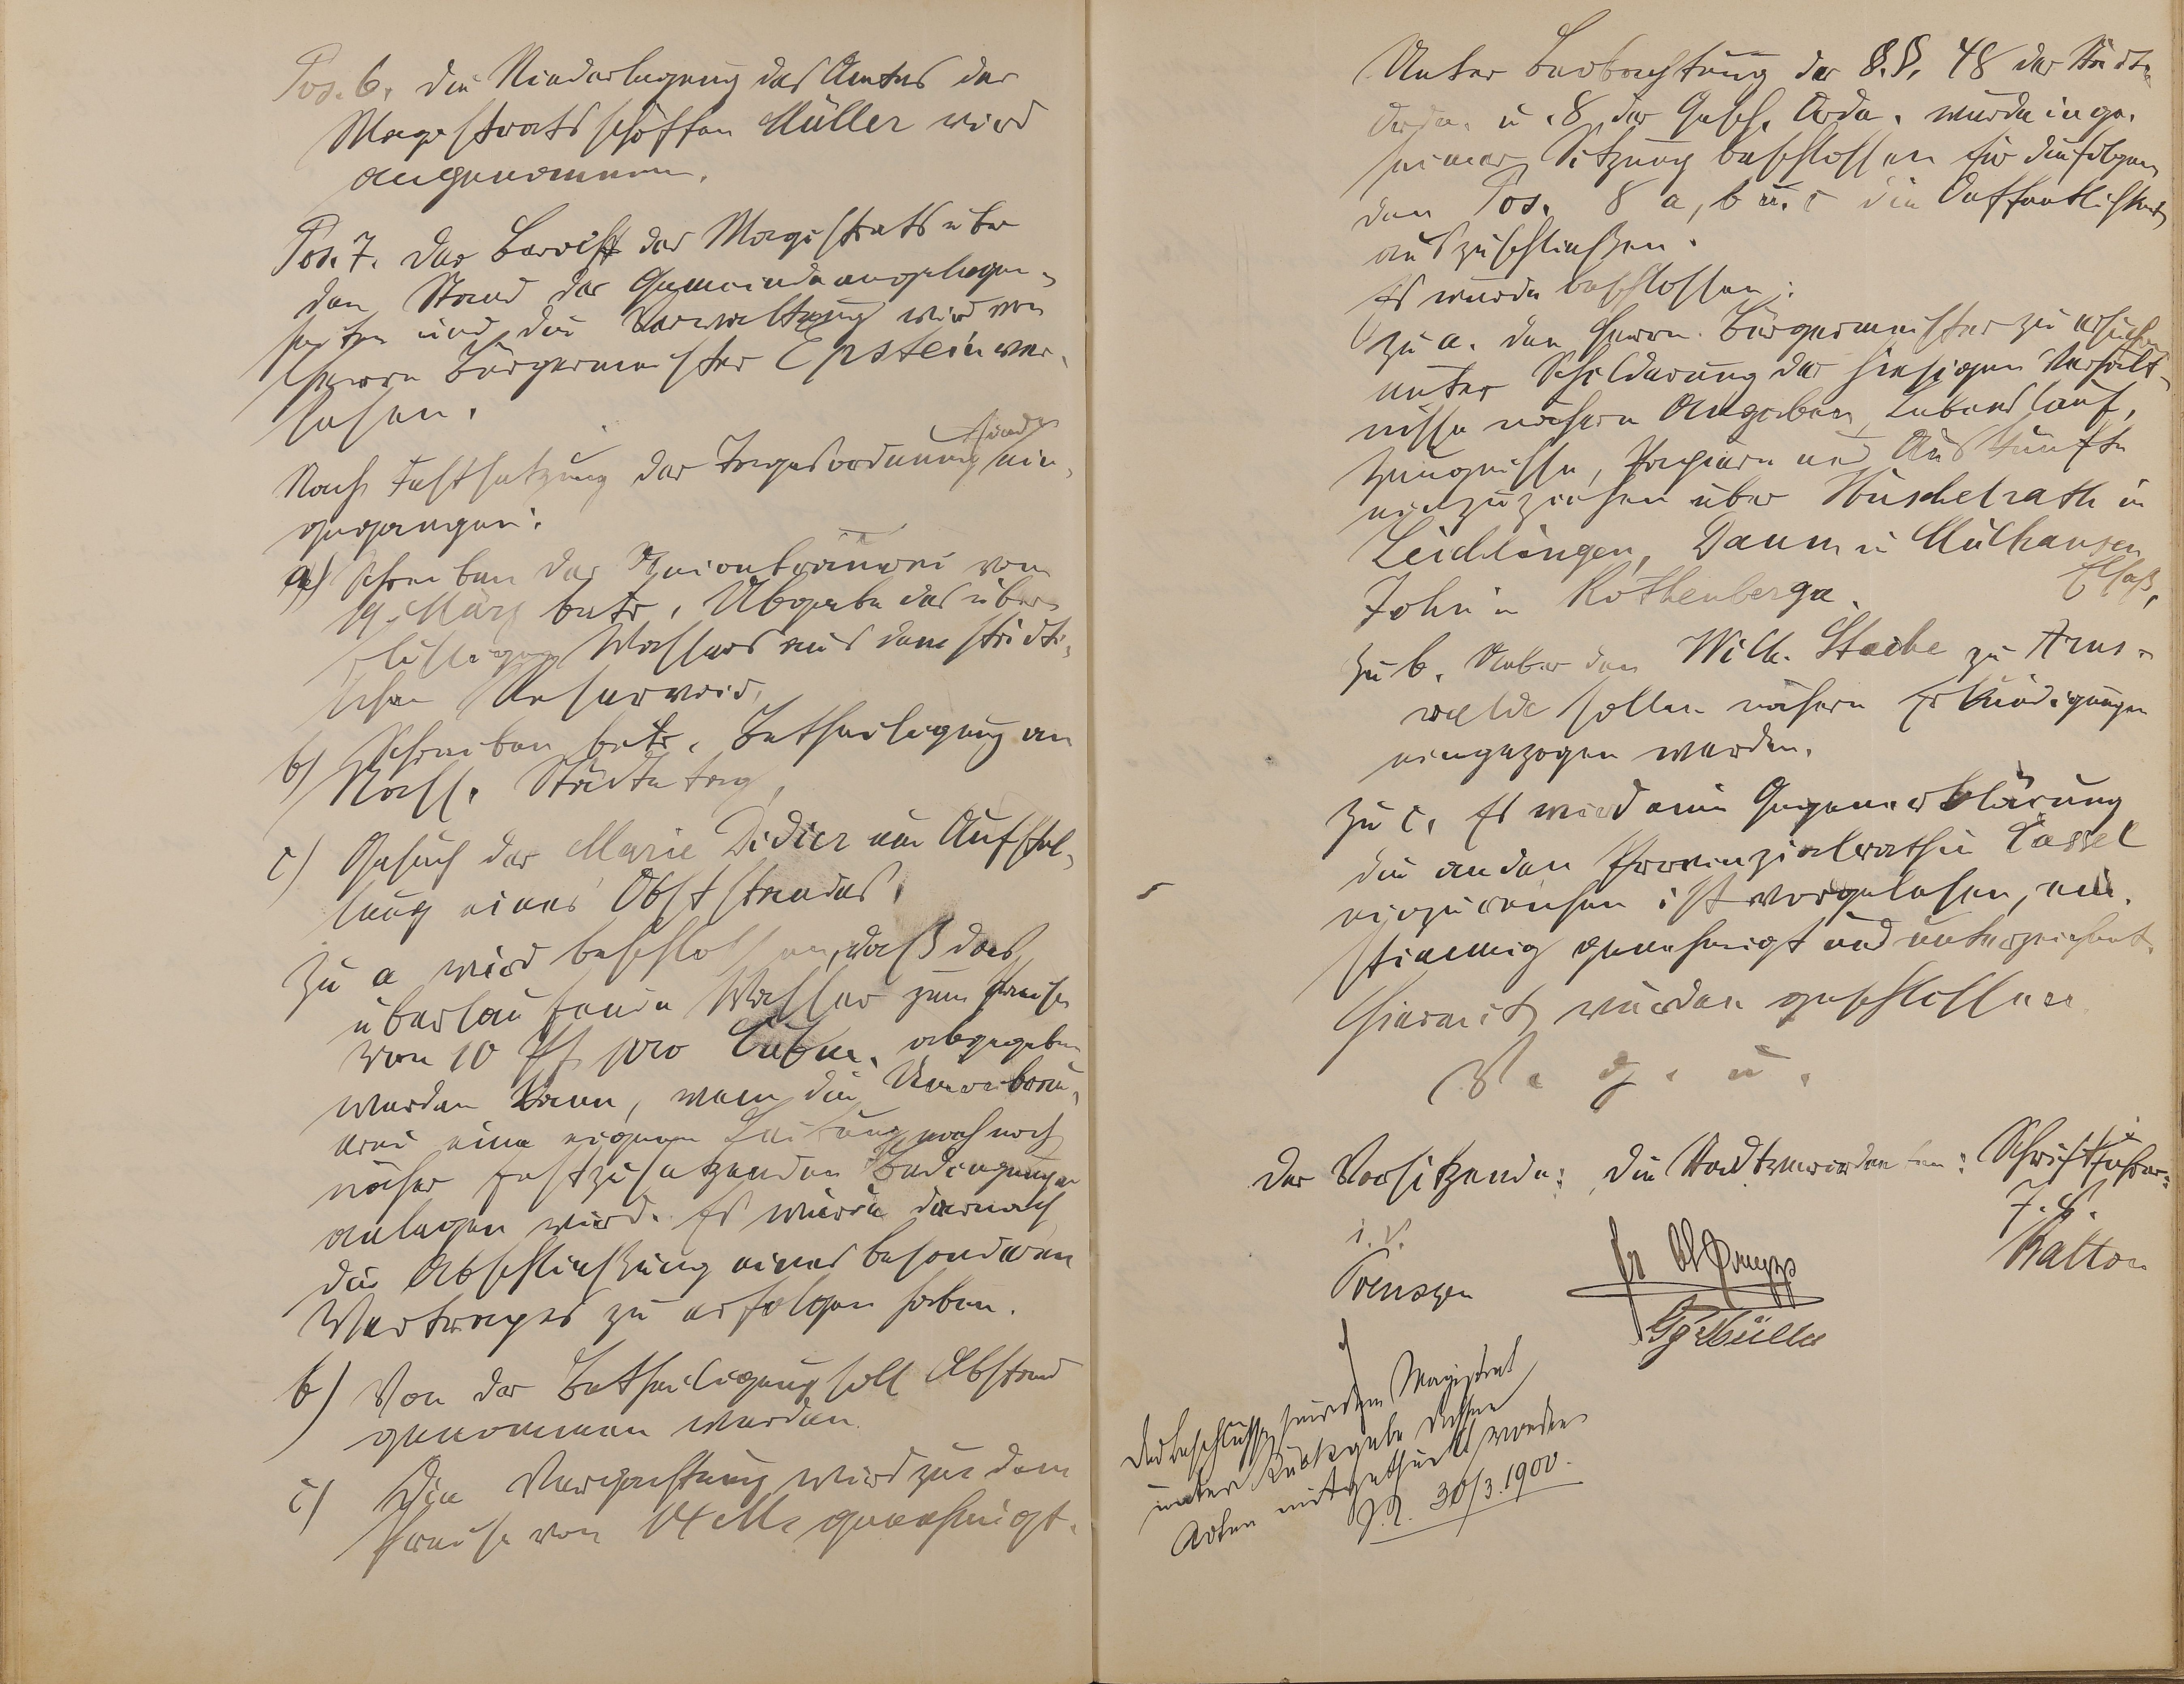 Pos. 6. Die Niederlegung des Amtes des
Magistratsschöffen Müller wird
angenommen.
Pos. 7. Der Bericht des Magistrats über
den Stand der Gemeindeangelegen-
heiten und die Verwaltung wird von
Herrn Bürgermeister Epstein ver-
lesen.
Nach Festsetzung der Tagesordnung sind ein-
gegangen:
a) Schreiben der Unionbrauerei vom
19. März betr. Abgabe des über-
flüssigen Wassers aus dem städti-
schen Reservoir.
b) Schreiben betr. Betheiligung am
Nass. Städtetag,
c) Gesuch der Marie Didier um Aufstel-
lung eines Obststandes.
Zu a wird beschlossen, daß das
überlaufende Wasser zum Preise
von 10 Pf pro Cubm. abgegeben
werden kann, wenn die Unionbrau-
erei eine eigene Leitung nach noch
näher festzusetzenden Bedingungen
anlegen wird. Es würde darnach
die Abschließung eines besonderen
Vertrages zu erfolgen haben.
b) Von der Betheiligung soll Abstand
genommen werden.
c) Die Verpachtung wird zu dem
Preise von 14 M. genehmigt.
Unter Beobachtung der §.§. 48 der Städte
Ordn. u. 8 der Gesch. Ordn. wurde in ge-
heimer Sitzung beschlossen für die folgen
den Pos. 8 a, b u. c die Oeffentlichkeit
auszuschließen.
Es wurde beschlossen:
zu a. den Herrn Bürgermeister zu ersuchen
unter Schilderung der hiesigen Verhält-
nisse nähere Angaben, Lebenslauf,
Zeugnisse, Papiere und Auskünfte
einzuziehen über Huschelrath in
Leichlingen, Daum in Mülhausen
Elsaß,
John in Rothenberga.
zu b. Ueber den Wilh. Staebe zu Arns-
walde sollen nähere Erkundigungen
eingezogen werden.
zu c. Es wird eine Gegenerklärung
die an den Provinzialrath in Cassel
einzureichen ist vorgelesen, ein-
stimmig genehmigt und unterzeichnet.
Hiermit wurde geschlossen
V. g. u.
Der Vorsitzende: Die Stadtverordneten: Schriftführer:
i. V.
J. H.
Trenszen
Kalton
Gg Müller
Die Beschlüsse sind dem Magistrat
unter Rückgabe dessen
Akten mitgetheilt worden
30/3. 1900.